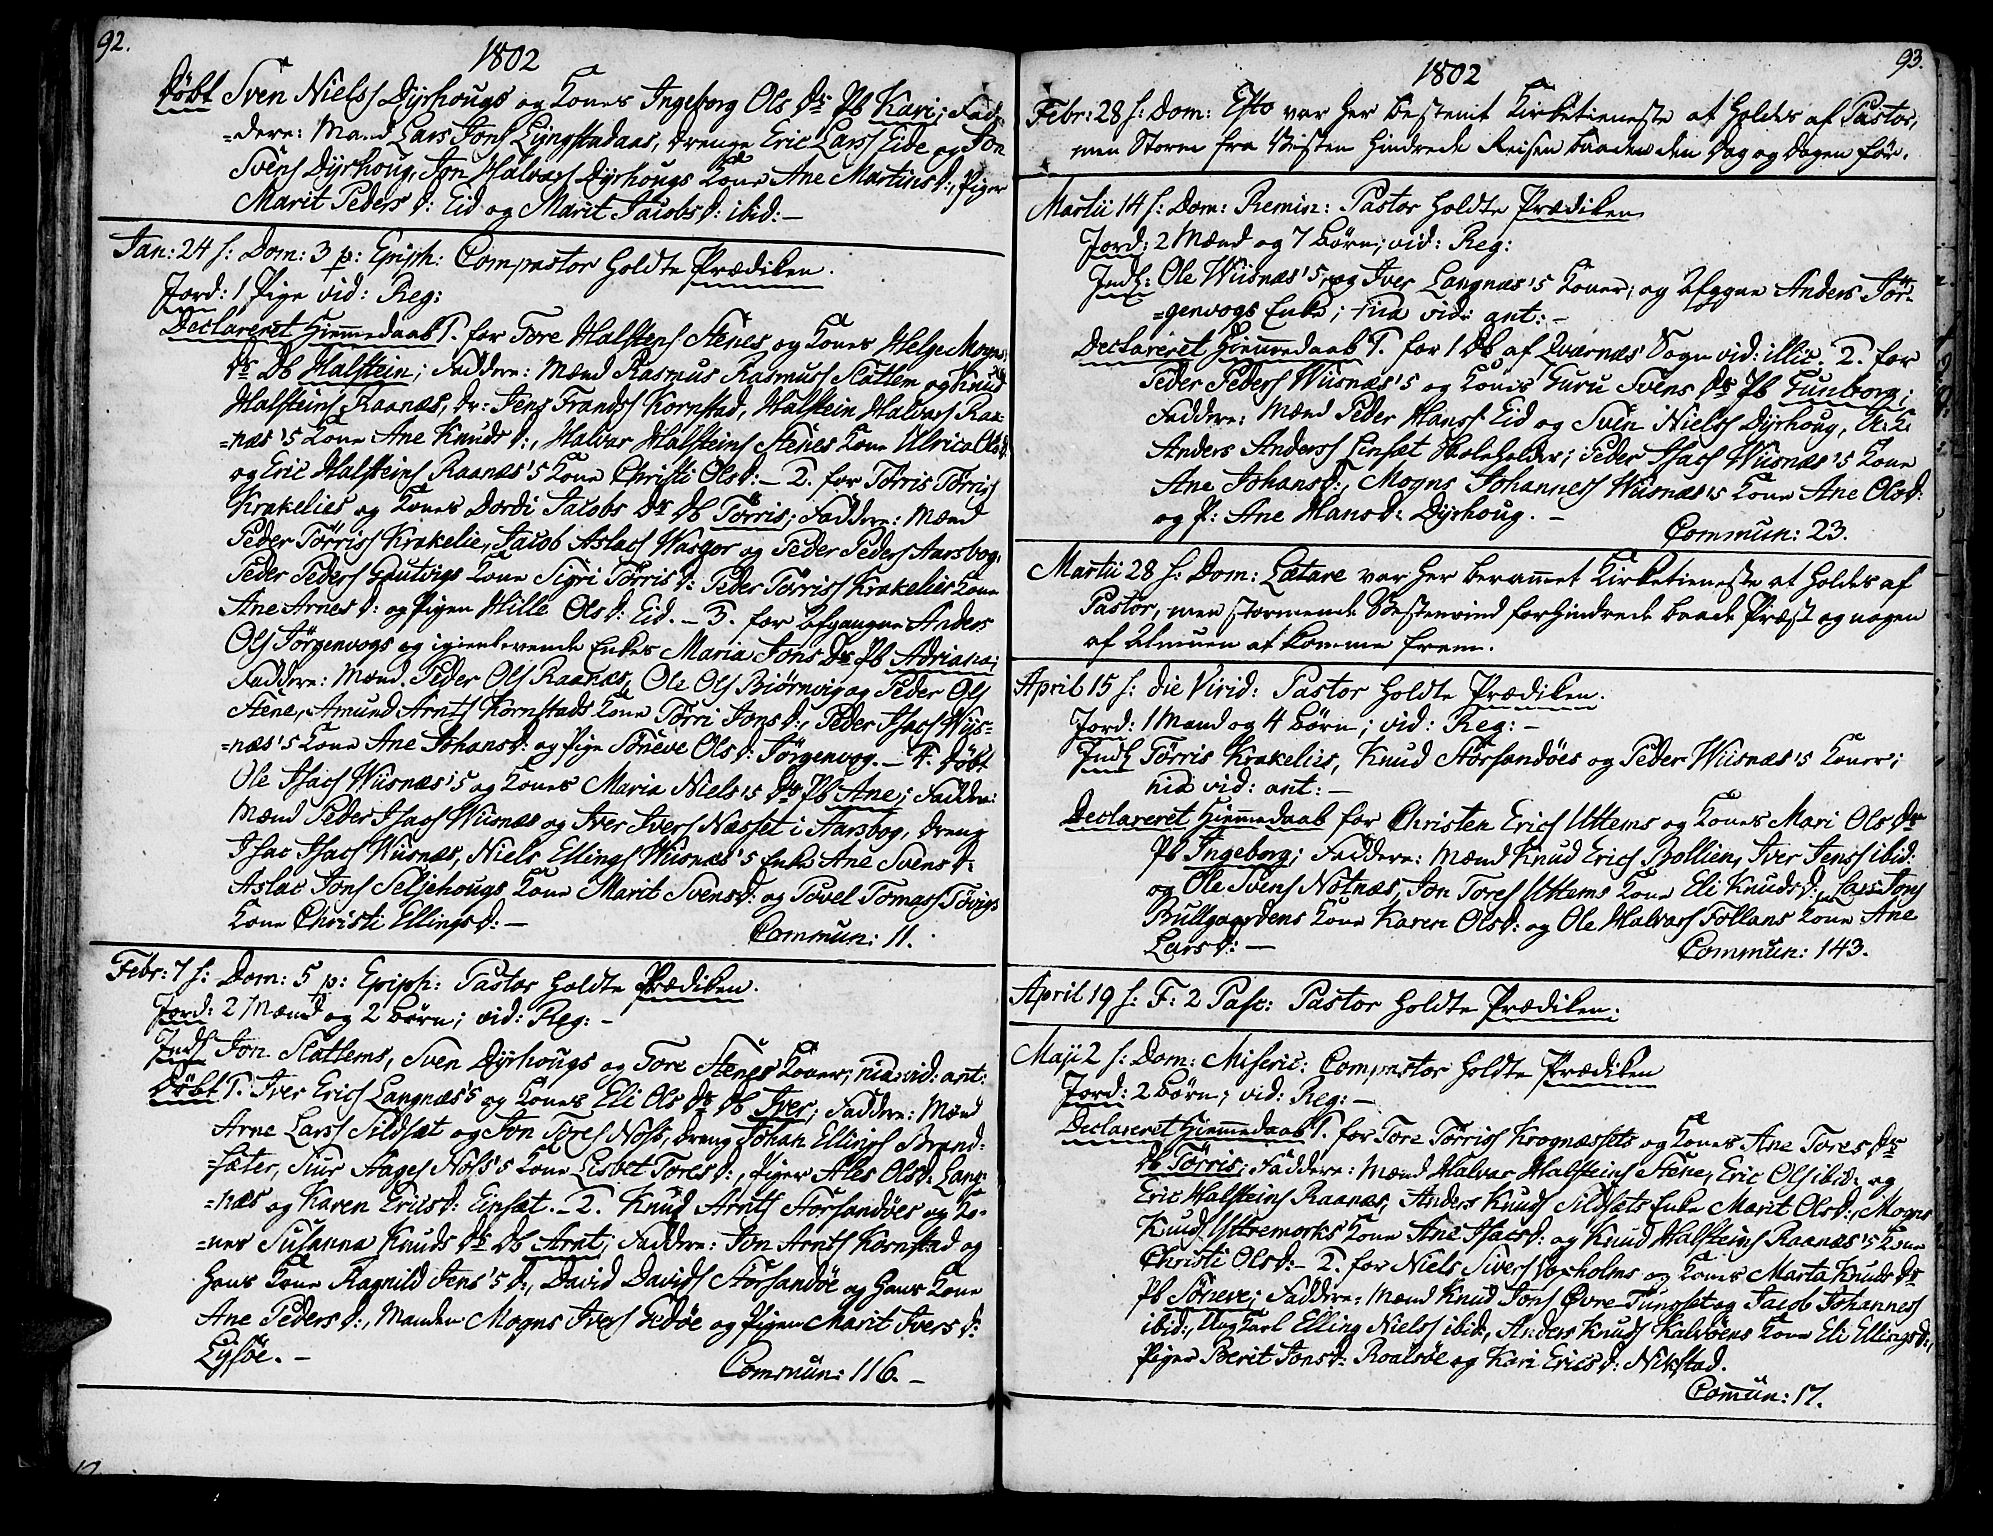 92.
1802
Døbt Sven Nielss Dyrhougs og Kones Ingeborg Ols Dr Pb Kari; Fad-
=dere: Mand Lars Jons Lyngstadaas, Drenge Eric Larss Eide og Jon
Svens Dyrhoug, Jon Halvors Dyrhougs Kone Ane Martins d:, Piger
Marit Peders d: Eid og Marit Jacobs d: ibid: —
Jan: 24 s: Dom: 3 p: Epiph: Compastor holdte Prædiken.
Jord: 1 Pige vid: Reg:
Declareret Hiemmedaab 1. for Tore Halstens Stenes og Kones Helge Mogns
Dr Db Halstein; Faddere: Mænd Rasmus Rasmuss Slatlem og Knud
Halsteins Raanæs, Dr: Jens Frandss Kornstad, Halstein Halvors Raa-
=næs's Kone Ane Knuds d:, Halvar Halsteins Stenes Kone Ulrica Ols d:
og Eric Halsteins Raanæs's Kone Christi Ols d: — 2. for Tørris Tørriss
Krakelies og Kones Dordi Jacobs Dr Db Tørris; Faddere: Mænd
Peder Tørriss Krakelie, Jacob Aslacs Wasgor og Peder Peders Aarsbog,
Peder Peders Gautvigs Kone Sigri Tørris d: Peder Tørriss Krakelies Kone
Ane Arnes d: og Pigen Hille Ols d: Eid. — 3. for Afgangne Anders
Ols Jørgenvogs og igienlevende Enkes Maria Jons Dr Pb Adriana;
Faddere: Mænd Peder Ols Raanæs, Ole Ols Biørnvig og Peder Ols
Stene, Amund Arnts Kornstads Kone Tørri Jons d:, Peder Isacs Wiis-
=næs's Kone Ane Johans d: og Pige Søneve Ols d: Jørgenvog. — 4. Døbt
Ole Isacs Wiisnæs's og Kones Maria Niels's Dr Pb Ane; Faddere:
Mænd Peder Isacs Wiisnæs og Iver Ivers Næsset i Aarsbog, Dreng
Isac Isacs Wiisnæs, Niels Ellings Wiisnæs's Enke Ane Svens d:
Aslac Jons Seljehougs Kone Marit Svens d: og Povel Tomass Tøvigs
Kone Christi Ellings d: —
Commun: 11.
Febr: 7 s: Dom: 5 p: Epiph: Pastor holdte Prædiken.
Jord: 2 Mænd og 2 Børn; vid: Reg: —
Indl Jon Slatlems, Sven Dyrhougs og Tore Stenes Koner; nia vid: ant:
Døbt 1. Iver Erics Langnæs's og Kones Eli Ols Dr Db Iver; Faddere: Mænd
Arne Larss Sildset og Jon Tores Nøss, Dreng Johan Ellings Brand-
=sæter, Siur Aages Nøss's Kone Lisbet Tores d:, Piger Ales Ols d: Lang-
=næs og Karen Erics d: Einset. — 2. Knud Arnts Størsandøes og Ko-
=nes Susanna Knuds Dr Db Arnt; Faddere: Jon Arnts Kornstad og
Hans Kone Ragnild Jens's d:, David Davids Størsandøe og Hans Kone
Ane Peders d:, Manden Mogns Ivers Gedøe og Pigen Marit Ivers d:
Lysøe. —
Commun: 116. —
93.
1802
Febr: 28 s: Dom: Esto var her bestemt Kirketieneste at holdes af Pastor,
men Storm fra Vesten hindrede Reisen baade den Dag og Dagen før.
Martii 14 s: Dom: Remin: Pastor holdte Prædiken
Jord: 2 Mænd og 7 Børn; vid: Reg:
Indl: Ole Wiisnæs's, og Iver Langnæs's Koner; og Afggne Anders Jør-
=genvogs Enke; nia vid: ant: —
Declareret Hiemmedaab 1. for 1 Db af Qværnæs Sogn vid: illic. 2. for
Peder Peders Wiisnæs's og Kones Guru Svens Dr Pb Gunborg;
Faddere: Mænd Peder Hanss Eid og Sven Nielss Dyrhoug, U: K:
Anders Anderss Linset Skoleholder; Peder Isacs Wiisnæs's Kone
Ane Johans d:, Mogns Johanness Wiisnæs's Kone Ane Ols d:
og P: Ane Hans d: Dyrhoug. —
Commun: 23.
Martii 28 s: Dom: Lætare var her berammet Kirketieneste at holdes af
Pastor, men stormende Vestenvind forhindrede baade Præst og nogen
af Almuen at komme frem.
April 15 s: die Virid: Pastor holdte Prædiken.
Jord: 1 Mand og 4 Børn; vid: Reg: —
Indl Tørris Krakelies, Knud Størsandøes og Peder Wiisnæs's Koner;
nia vid: ant: —
Declareret Hiemmedaab for Christen Erics Uttems og Kones Mari Ols Dr
Pb Ingeborg; Faddere: Mænd Knud Erics Bollien, Iver Jenss ibid:
og Ole Svens Nøtnæs, Jon Tores Uttems Kone Eli Knuds d:, Lars Jons
Bullgaardens Kone Karen Ols d: og Ole Halvars Follans Kone Ane
Lars d: —
Commun: 143.
April 19 s: F: 2 Pasc: Pastor holdte Prædiken.
Maji 2 s: Dom: Miseric: Compastor holdte Prædiken
Jord: 2 Børn; vid: Reg: —
Declareret Hiemmedaab 1. for Tore Tørriss Krognæssets og Kones Ane Tores Dr
Db Tørris; Faddere: Mænd Halvar Halsteins Stene, Eric Ols ibid: og
Eric Halsteins Raanæs, Anders Knuds Sildsets Enke Marit Ols d:, Mogns
Knuds Ytremorks Kone Ane Isacs d: og Knud Halsteins Raanæs's Kone
Christi Ols d: — 2. for Niels Sivers Voxholms og Kones Marta Knuds Dr
Pb Søneve; Faddere: Mænd Knud Jons Øvre-Tunset og Jacob Johanness
ibid:, Ungkarl Elling Nielss ibid:, Anders Knuds Kalvøens Kone Eli Ellings d:,
Piger Berit Jons d: Roalsøe og Kari Erics d: Nikstad.
Comun: 17.